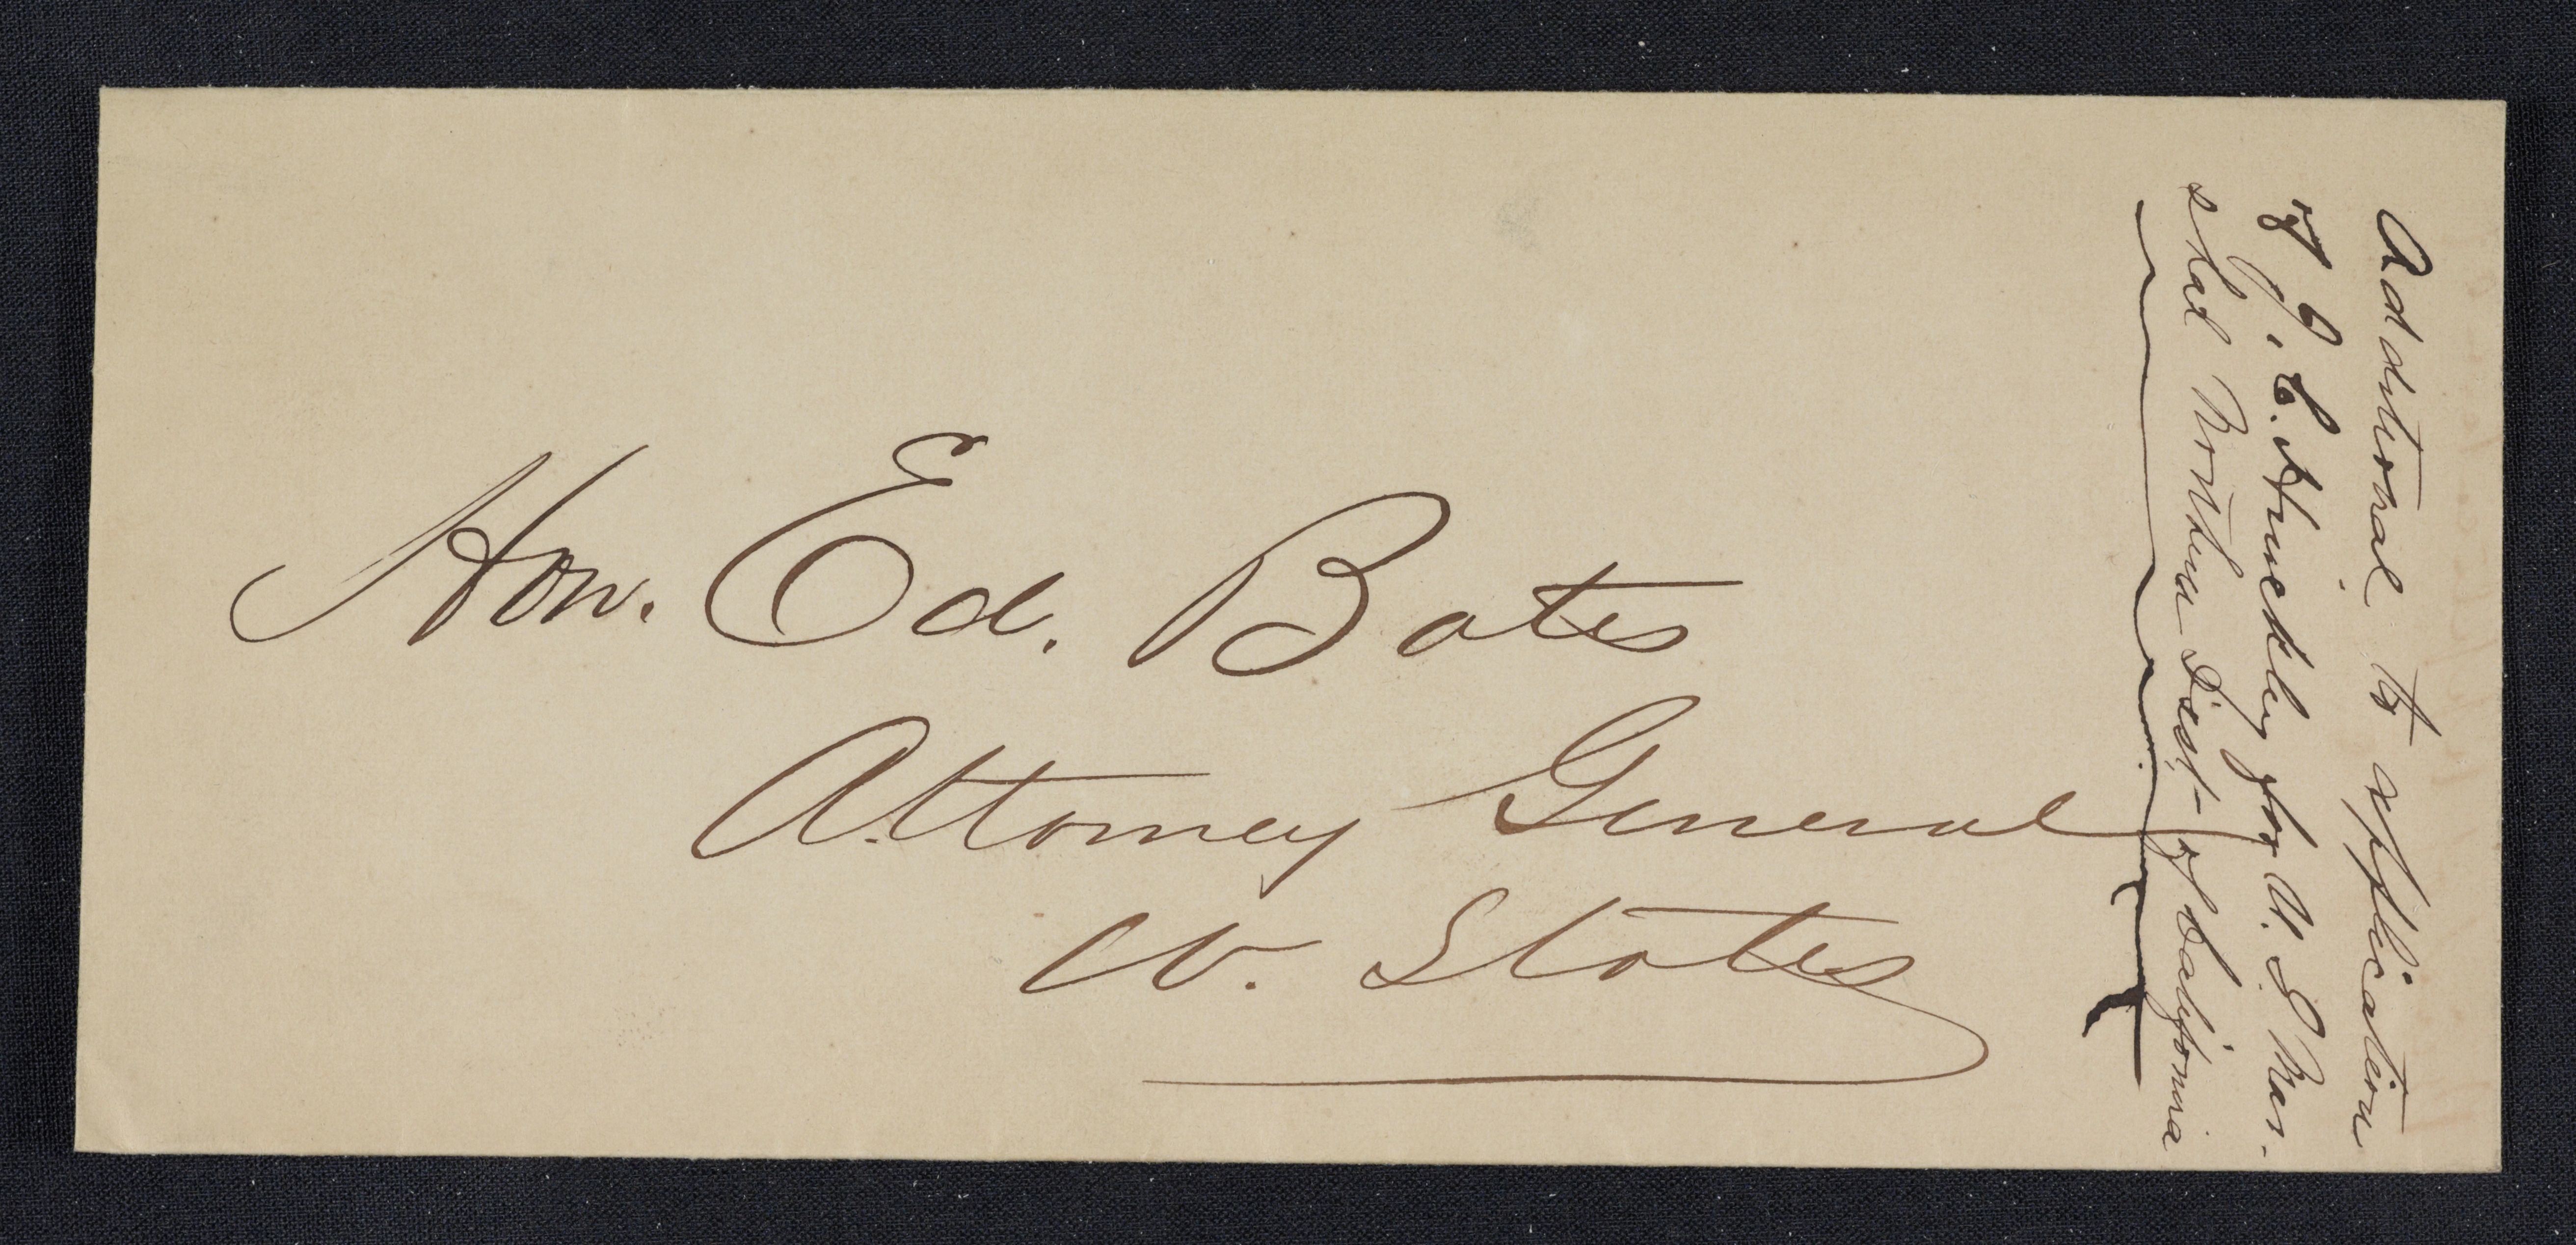 Hon. Ed. Bates
Attorney General
U. States
Additional to application
of J. C. Hinckley for U. S. Mar-
shal Northern Dist- of California